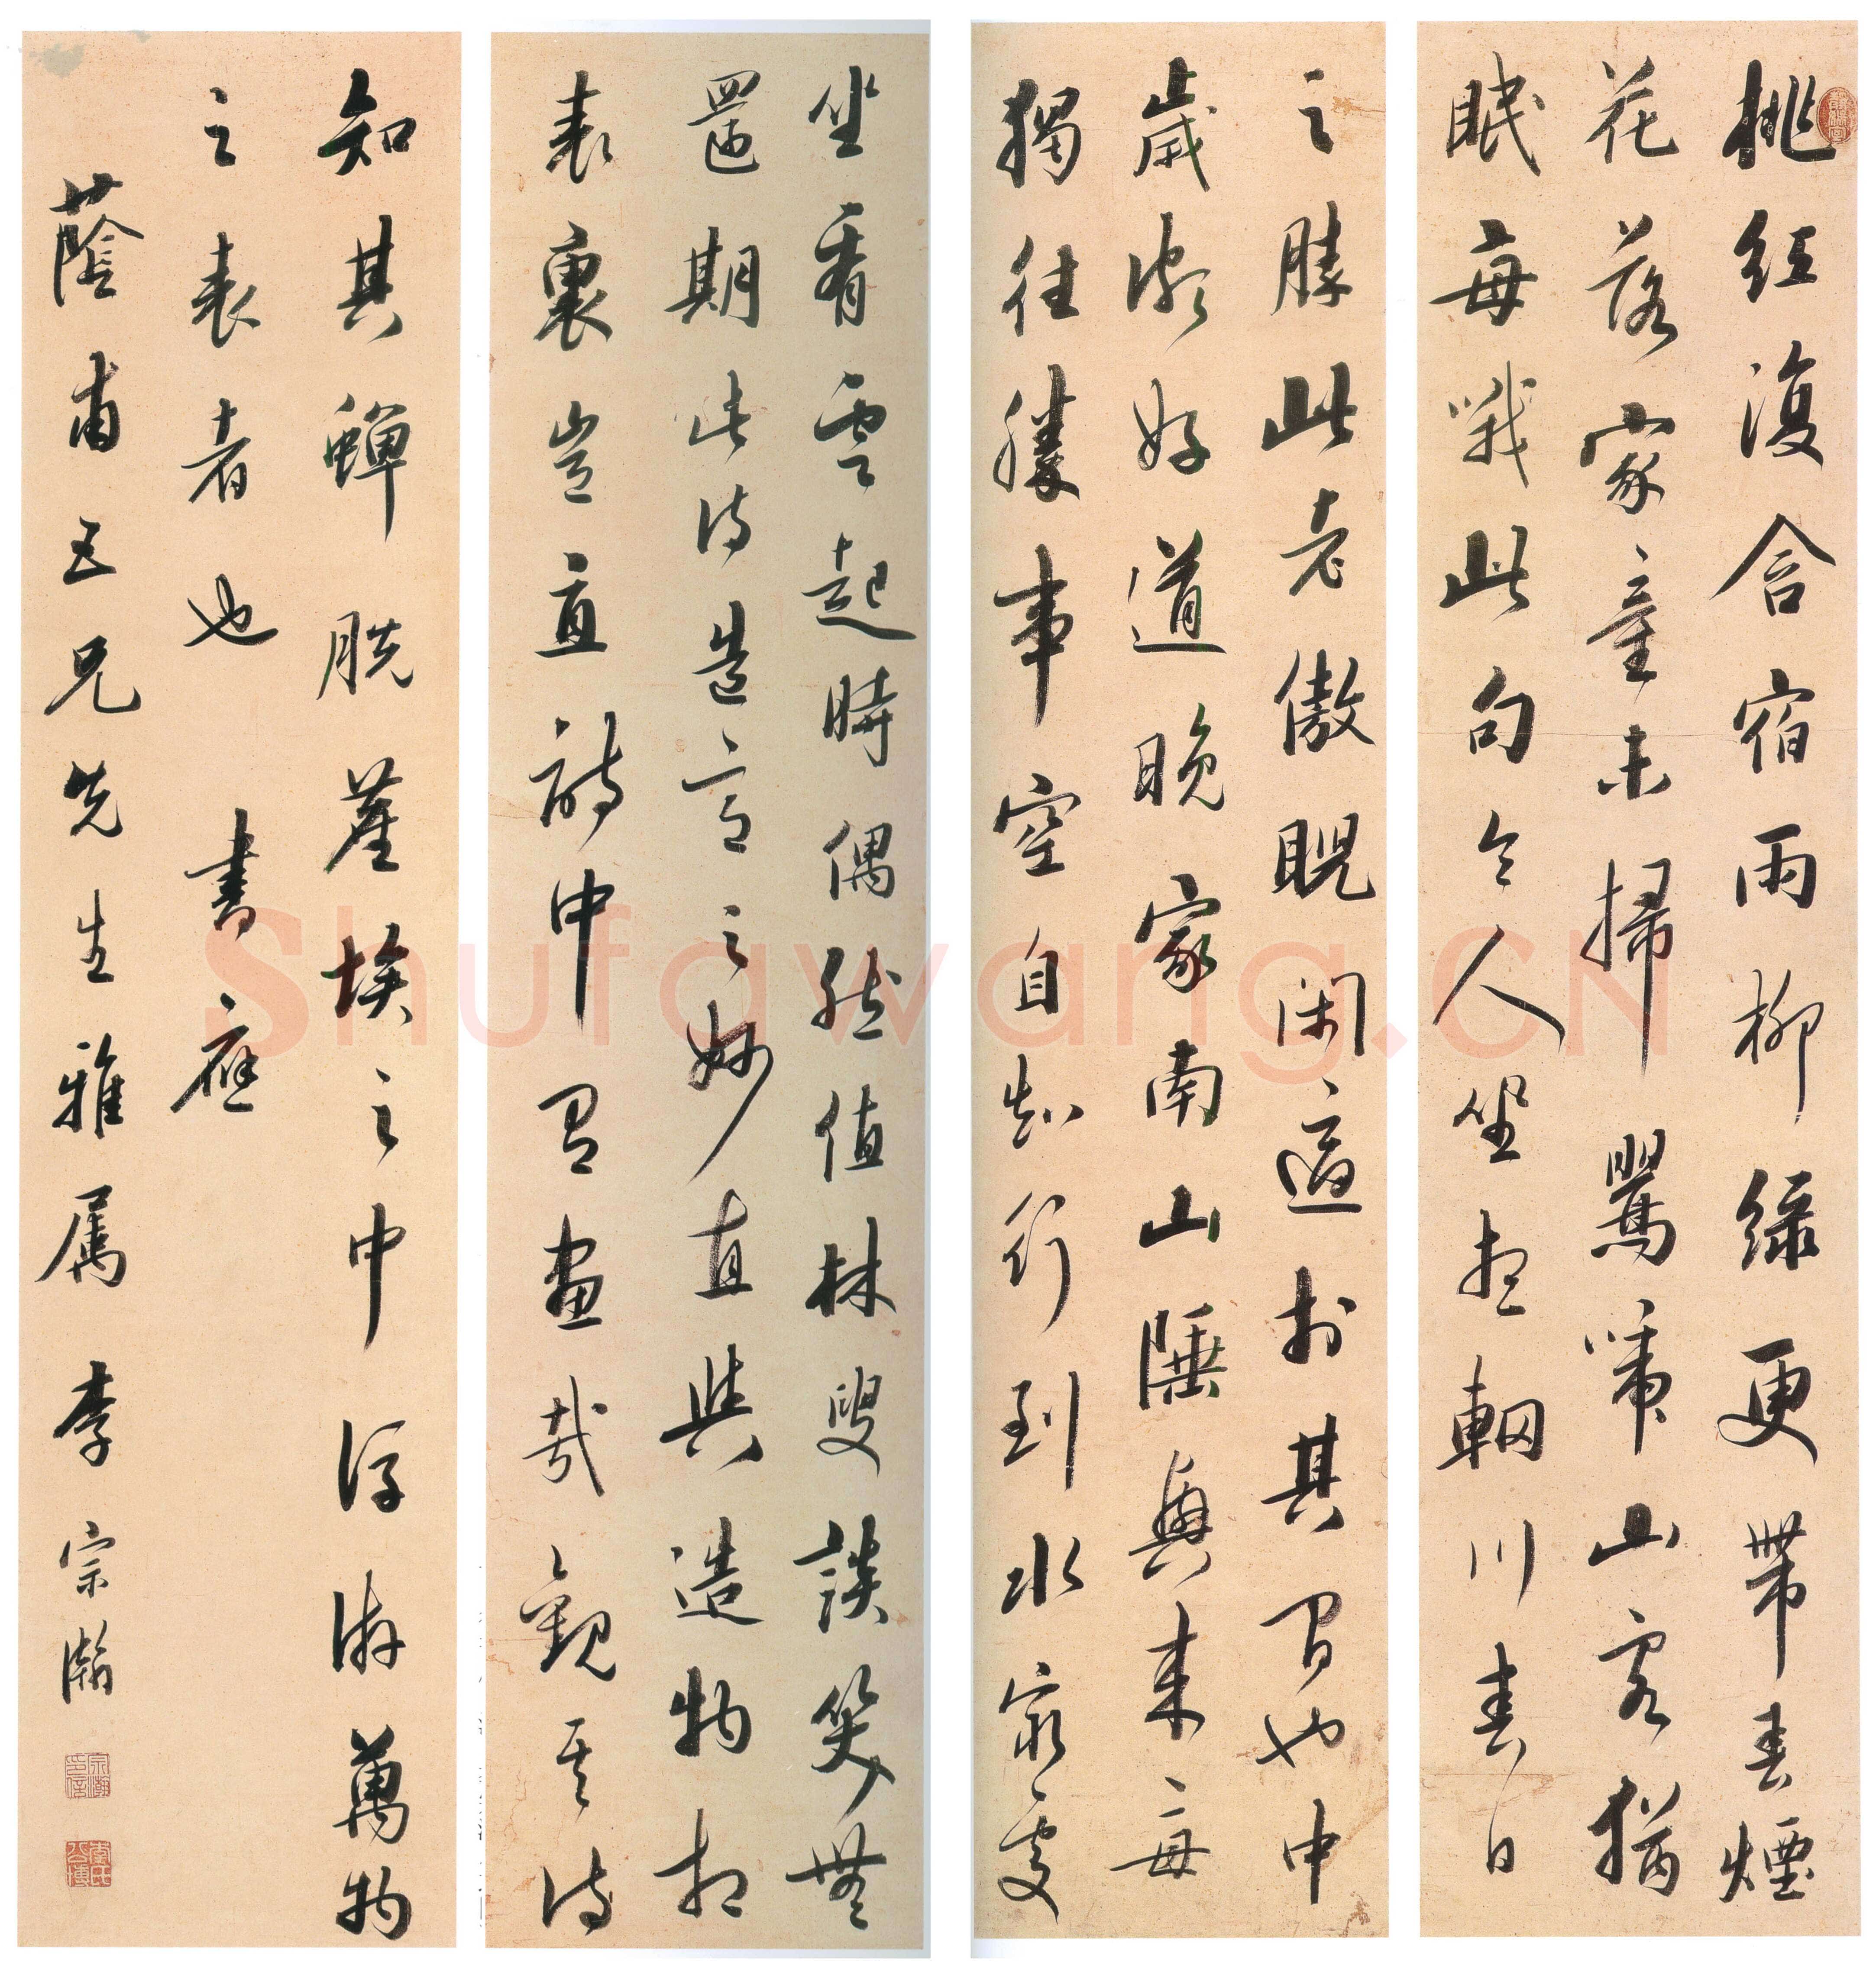 桃紅復含宿雨柳緑更帶春煙
花落家童未掃鶯啼山客猶
眠每哦此句令人坐想輞川春日
之勝此老傲睨閑適於其間也中
歲頗好道晚家南山陲興來每
獨往勝事空自知行到水窮處
坐看雲起時偶然值林叟談笑無
還期此詩造意之妙直與造物相
表裏豈直詩中有畫哉觀其詩
知其蟬脫塵埃之中浮游萬物
之表者也 書應
蔭甫五兄先生雅屬 李宗瀚
宗瀚印信
李氏公博
Shufawang.CN